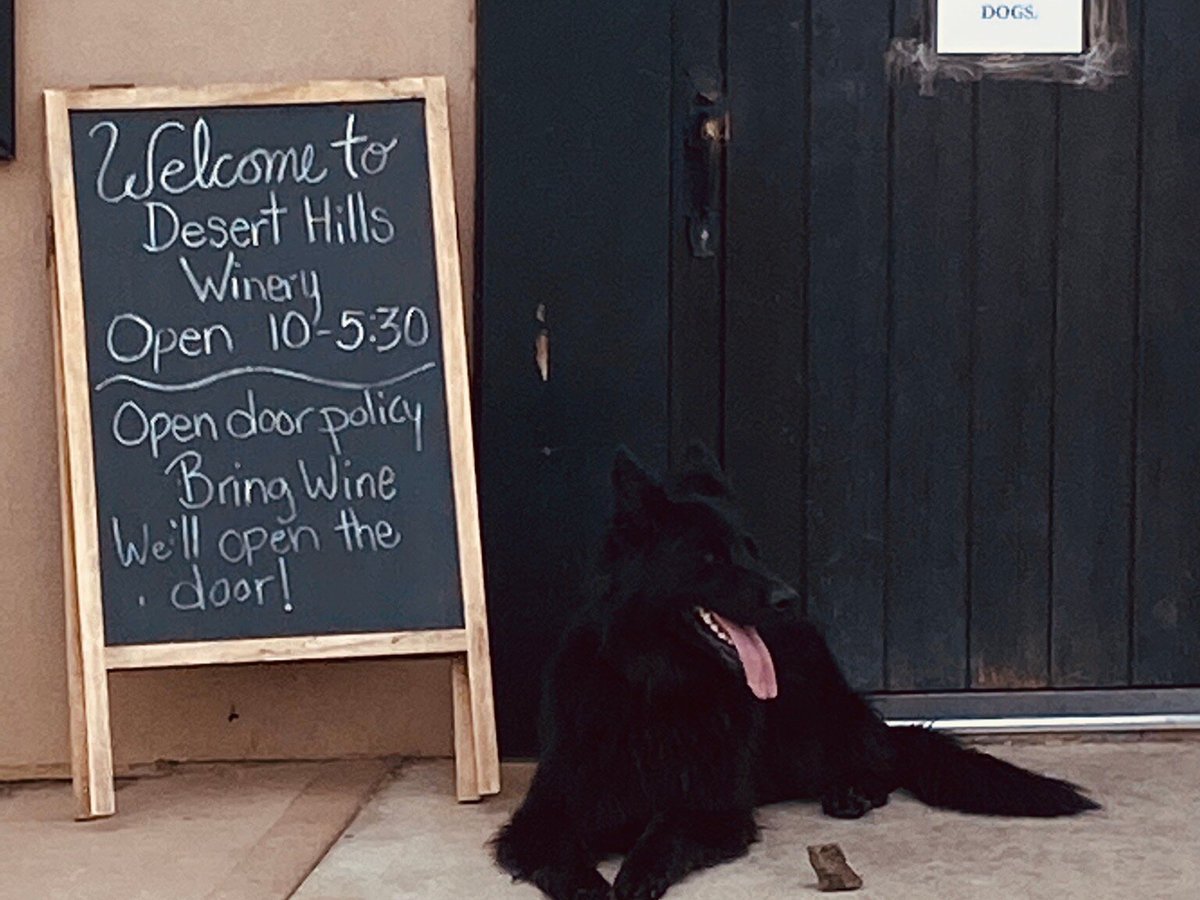 Welcome to
Desert Hills
Winery
Open 10-5:30
Open door policy
Bring Wine
We'll open the
door!
DOGS.